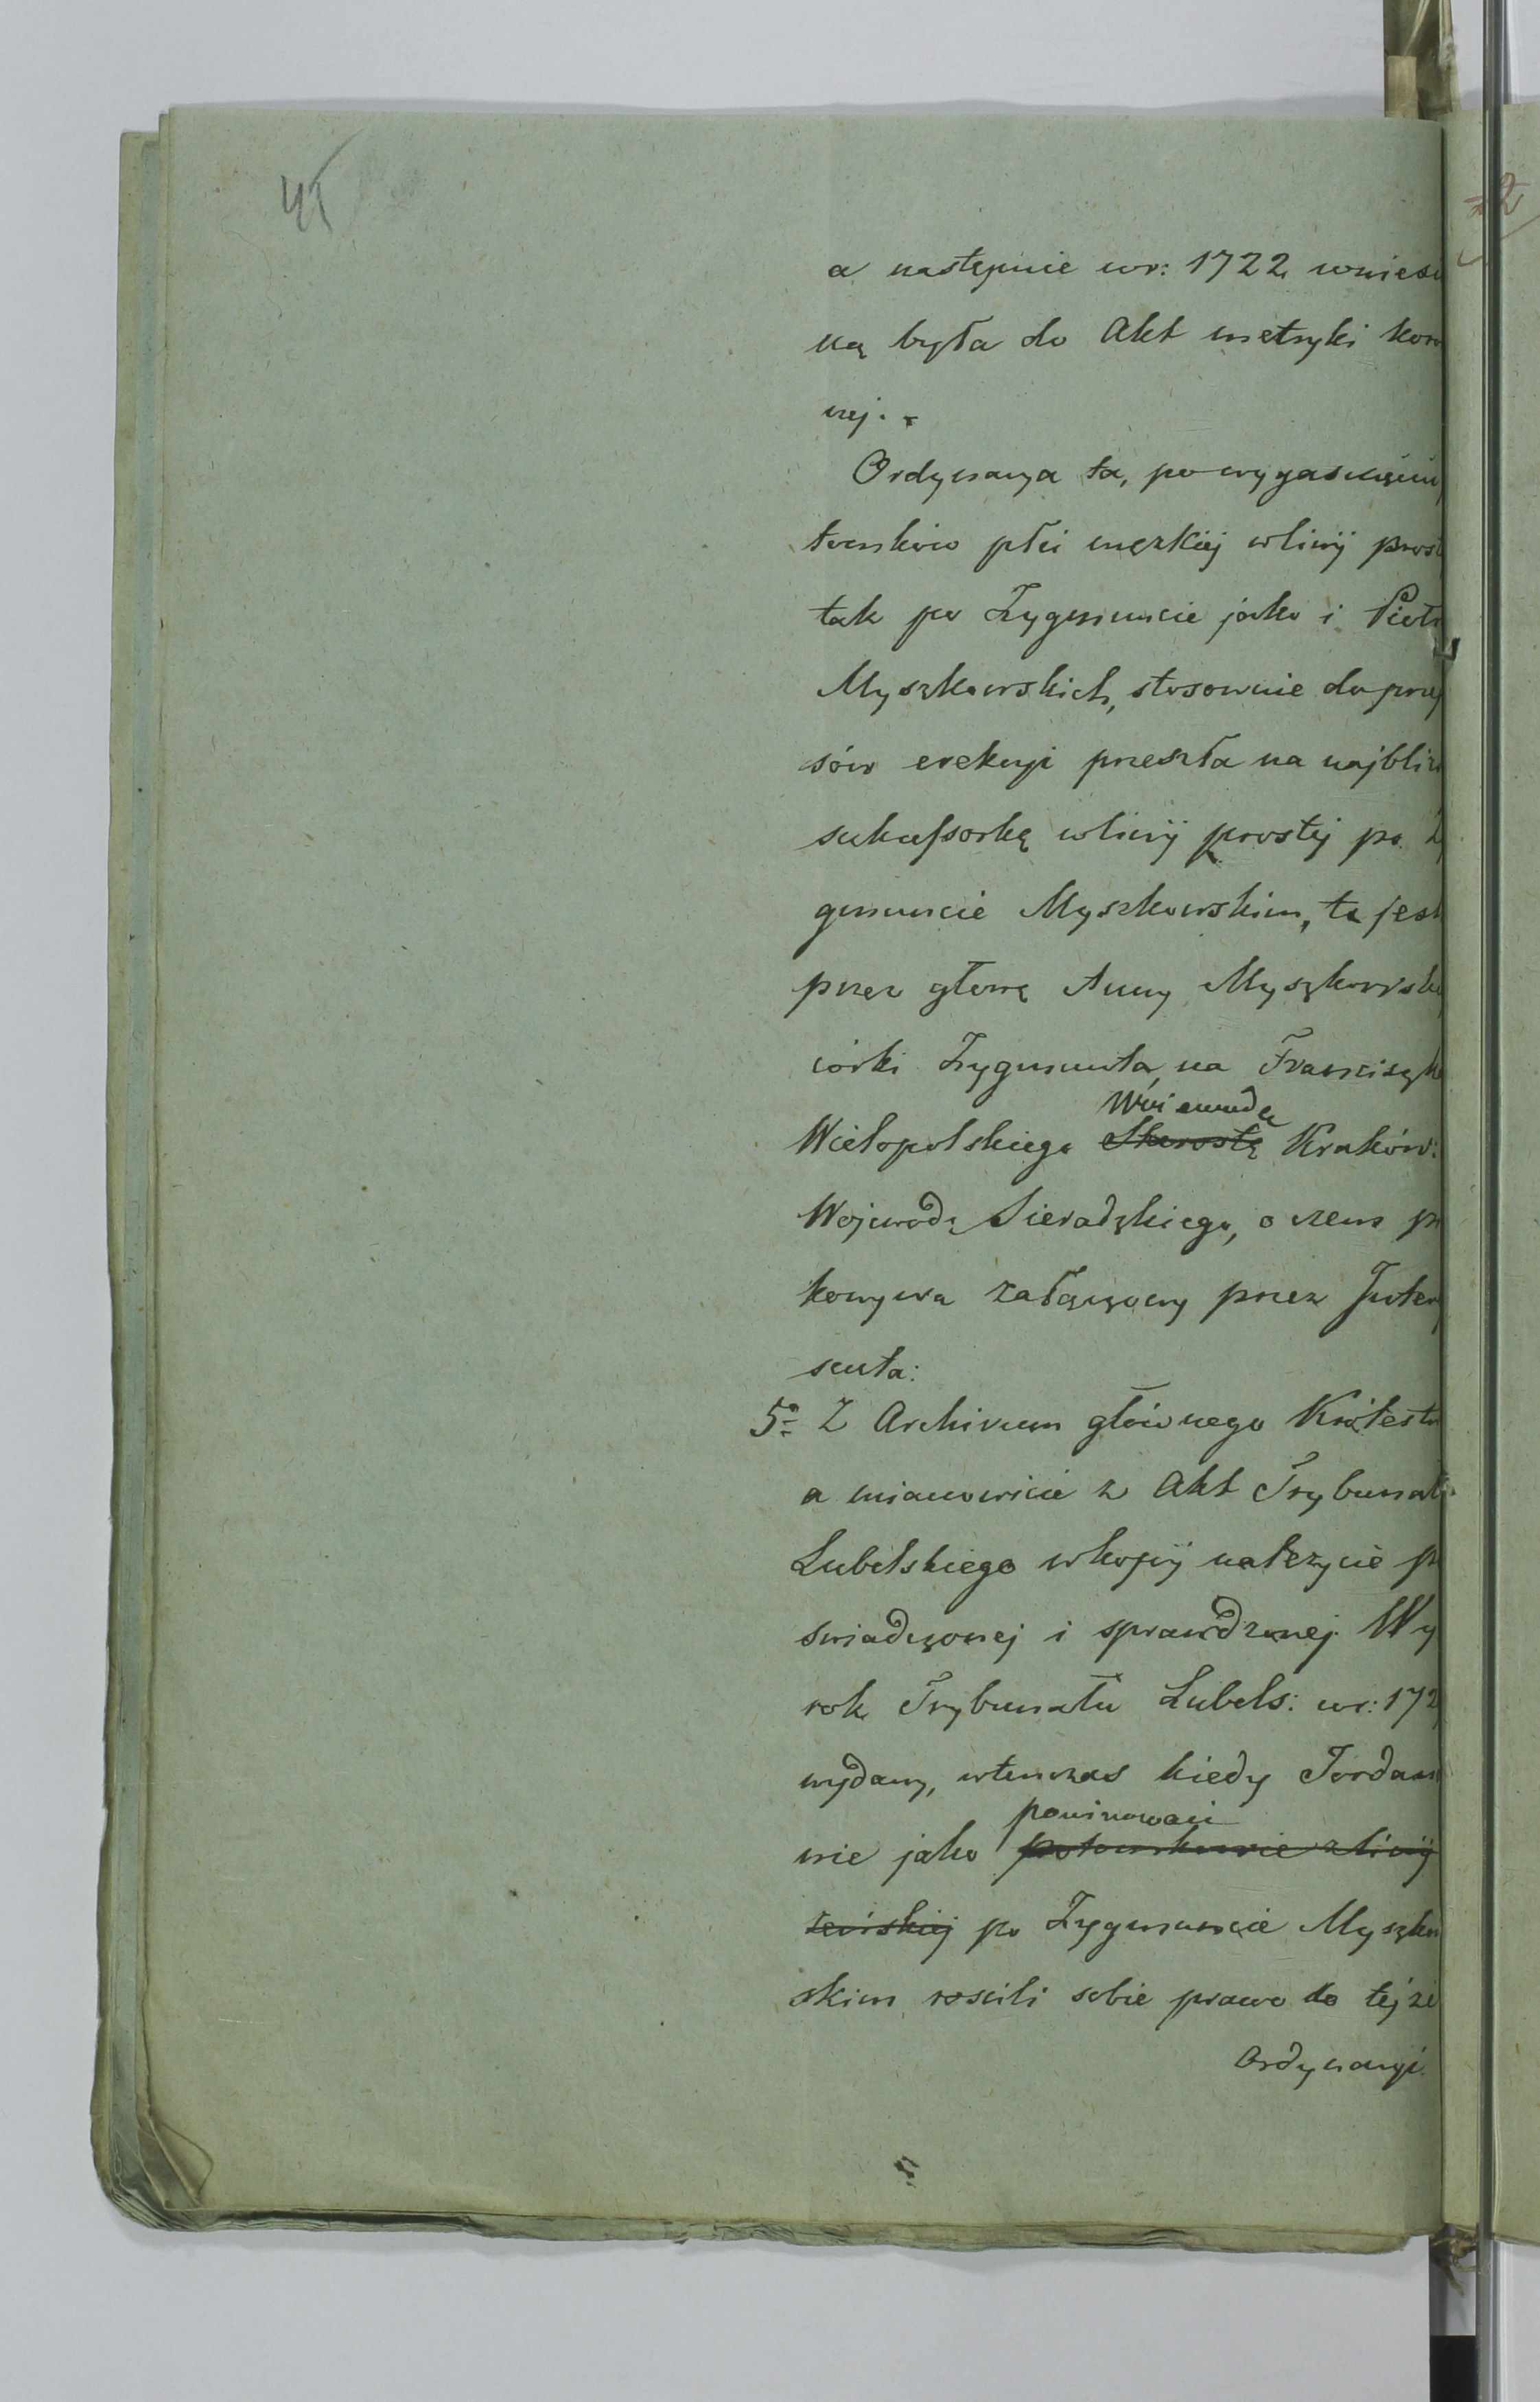 45
a następnie w r: 1722 wniesio
ną była do Akt metryki koro
nej.
Ordynacya ta, po wygaśnięciu
tomków płci męzkiej w linij prost
tak po Zygmuncie jako i Piotr
Myszkowskich, stosownie do przep
sów erekcyi przeszła na najbliż
sukcessorkę w linij prostej po Zy
gmuncie Myszkowskim, to jest
przez głowę Anny Myszkowski
córki Zygmunta, na Franciszka
Wojewodę
Wielopolskiego Starostę Kraków:
Wojewodę Sieradzkiego, o czem prze
konywa załączony przez Intere
senta:
5º Z Archivum głównego Królestw
a mianowicie z Akt Trybunał
Lubelskiego w kopij należycie po
świadczonej i sprawdzonej Wy
rok Trybunału Lubels: w r: 172
wydany, wtenczas kiedy Jordan
powinowaci
wie jako potomkowie z linij
żeńskiej po Zygmuncie Myszkow
skim rościli sobie prawo do tejże
Ordynacyi.